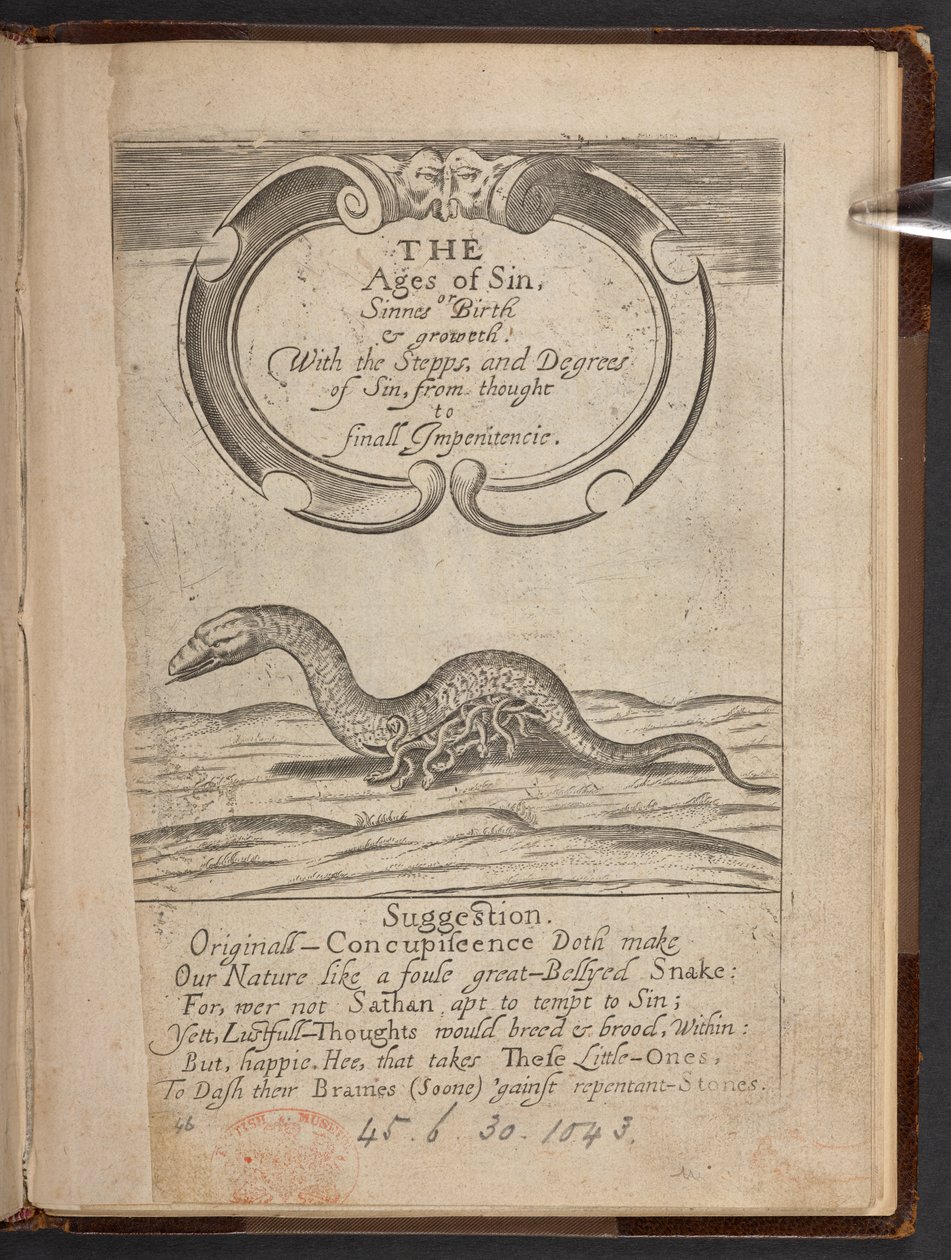 THE
Ages of Sin,
or
Sinnes Birth
& groweth.
With the Stepps, and Degrees
of Sin, from thought
to
finall Impenitencie.
Suggestion.
Originall–Concupiſcence Doth make
Our Nature like a foule great–Bellyed Snake:
For, wer not Sathan apt to tempt to Sin;
Yett, Lustfull–Thoughts would breed & brood, Within:
But, happie Hee, that takes Theſe Little–Ones,
To Daſh their Braines (Soone) 'gainſt repentant–Stones.
46
45. b. 30. 1043.
MUSE